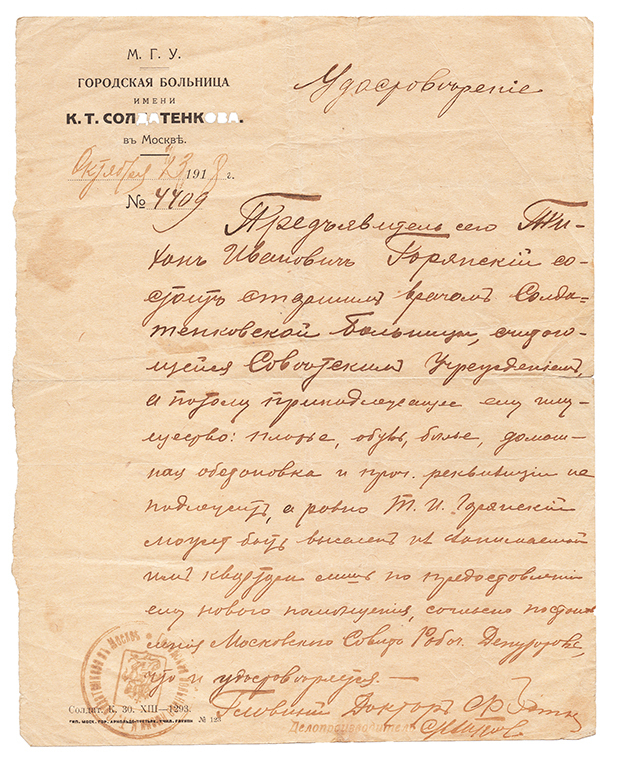 М. Г. У.
ГОРОДСКАЯ БОЛЬНИЦА
ИМЕНИ
К. Т. СОЛДАТЕНКОВА.
въ Москвѣ.
Октября 23 1918 г.
№ 4409
Удостовѣреніе
Предъявитель сего Ти-
хонъ Ивановичъ Горянскій со-
стоитъ старшимъ врачомъ Солда-
тенковской Больницы, счита-
ющейся Совѣтскимъ Учрежденіемъ,
а потому принадлежащее ему иму-
щество: платье, обувь, бѣлье, домаш-
няя обстановка и проч. реквизиціи не
подлежитъ, а равно Т. И. Горянскій
можетъ быть выселенъ изъ занимаемой
имъ квартиры лишь по предоставленіи
ему нового помѣщенія, согласно постанов
ленія Московского Совѣта Рабоч. Депутатовъ,
что и удостовѣряется.—
Главный Докторъ
Делопроизводитель
Солдат. К. 30. XIII—1293.
ТИП. МОСК. ГОР. АРНОЛЬДО-ТРЕТЬЯК. УЧИЛ. ГЛУХОН № 123